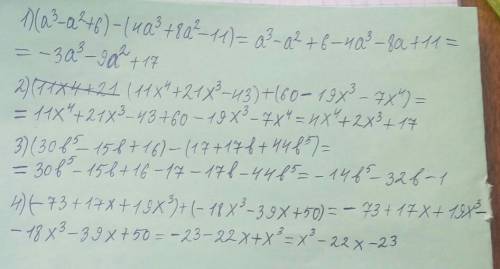 1) (a³-a²+6)-(4a³+8a²-11)= a³-a²+6-4a³-8a+11=
= -3a³-9a²+17
2) (11x4+21 (11x⁴+21x³-43)+(60-19x³-7x⁴)=
= 11x⁴+21x³-43+60-19x³-7x⁴=4x⁴+2x³+17
3) (30b⁵-15b+16)-(17+17b+44b⁵)=
= 30b⁵-15b+16-17-17b-44b⁵=-14b⁵-32b-1
4) (-73+17x+19x³)+(-18x³-39x+50)=-73+17x+19x³-
-18x³-39x+50=-23-22x+x³=x³-22x-23